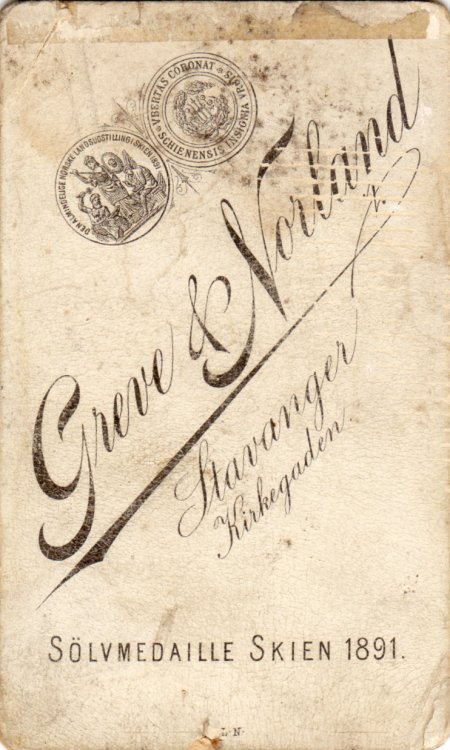 VBERTAS CORONAT
SCHIENENSIS INSIGNIA VRBIS
DEN ALMINDELIGE NORSKE LANDSUDSTILLING I SKIEN 1891
Greve & Norland
Stavanger
Kirkegaden.
SÖLVMEDAILLE SKIEN 1891.
L.N.